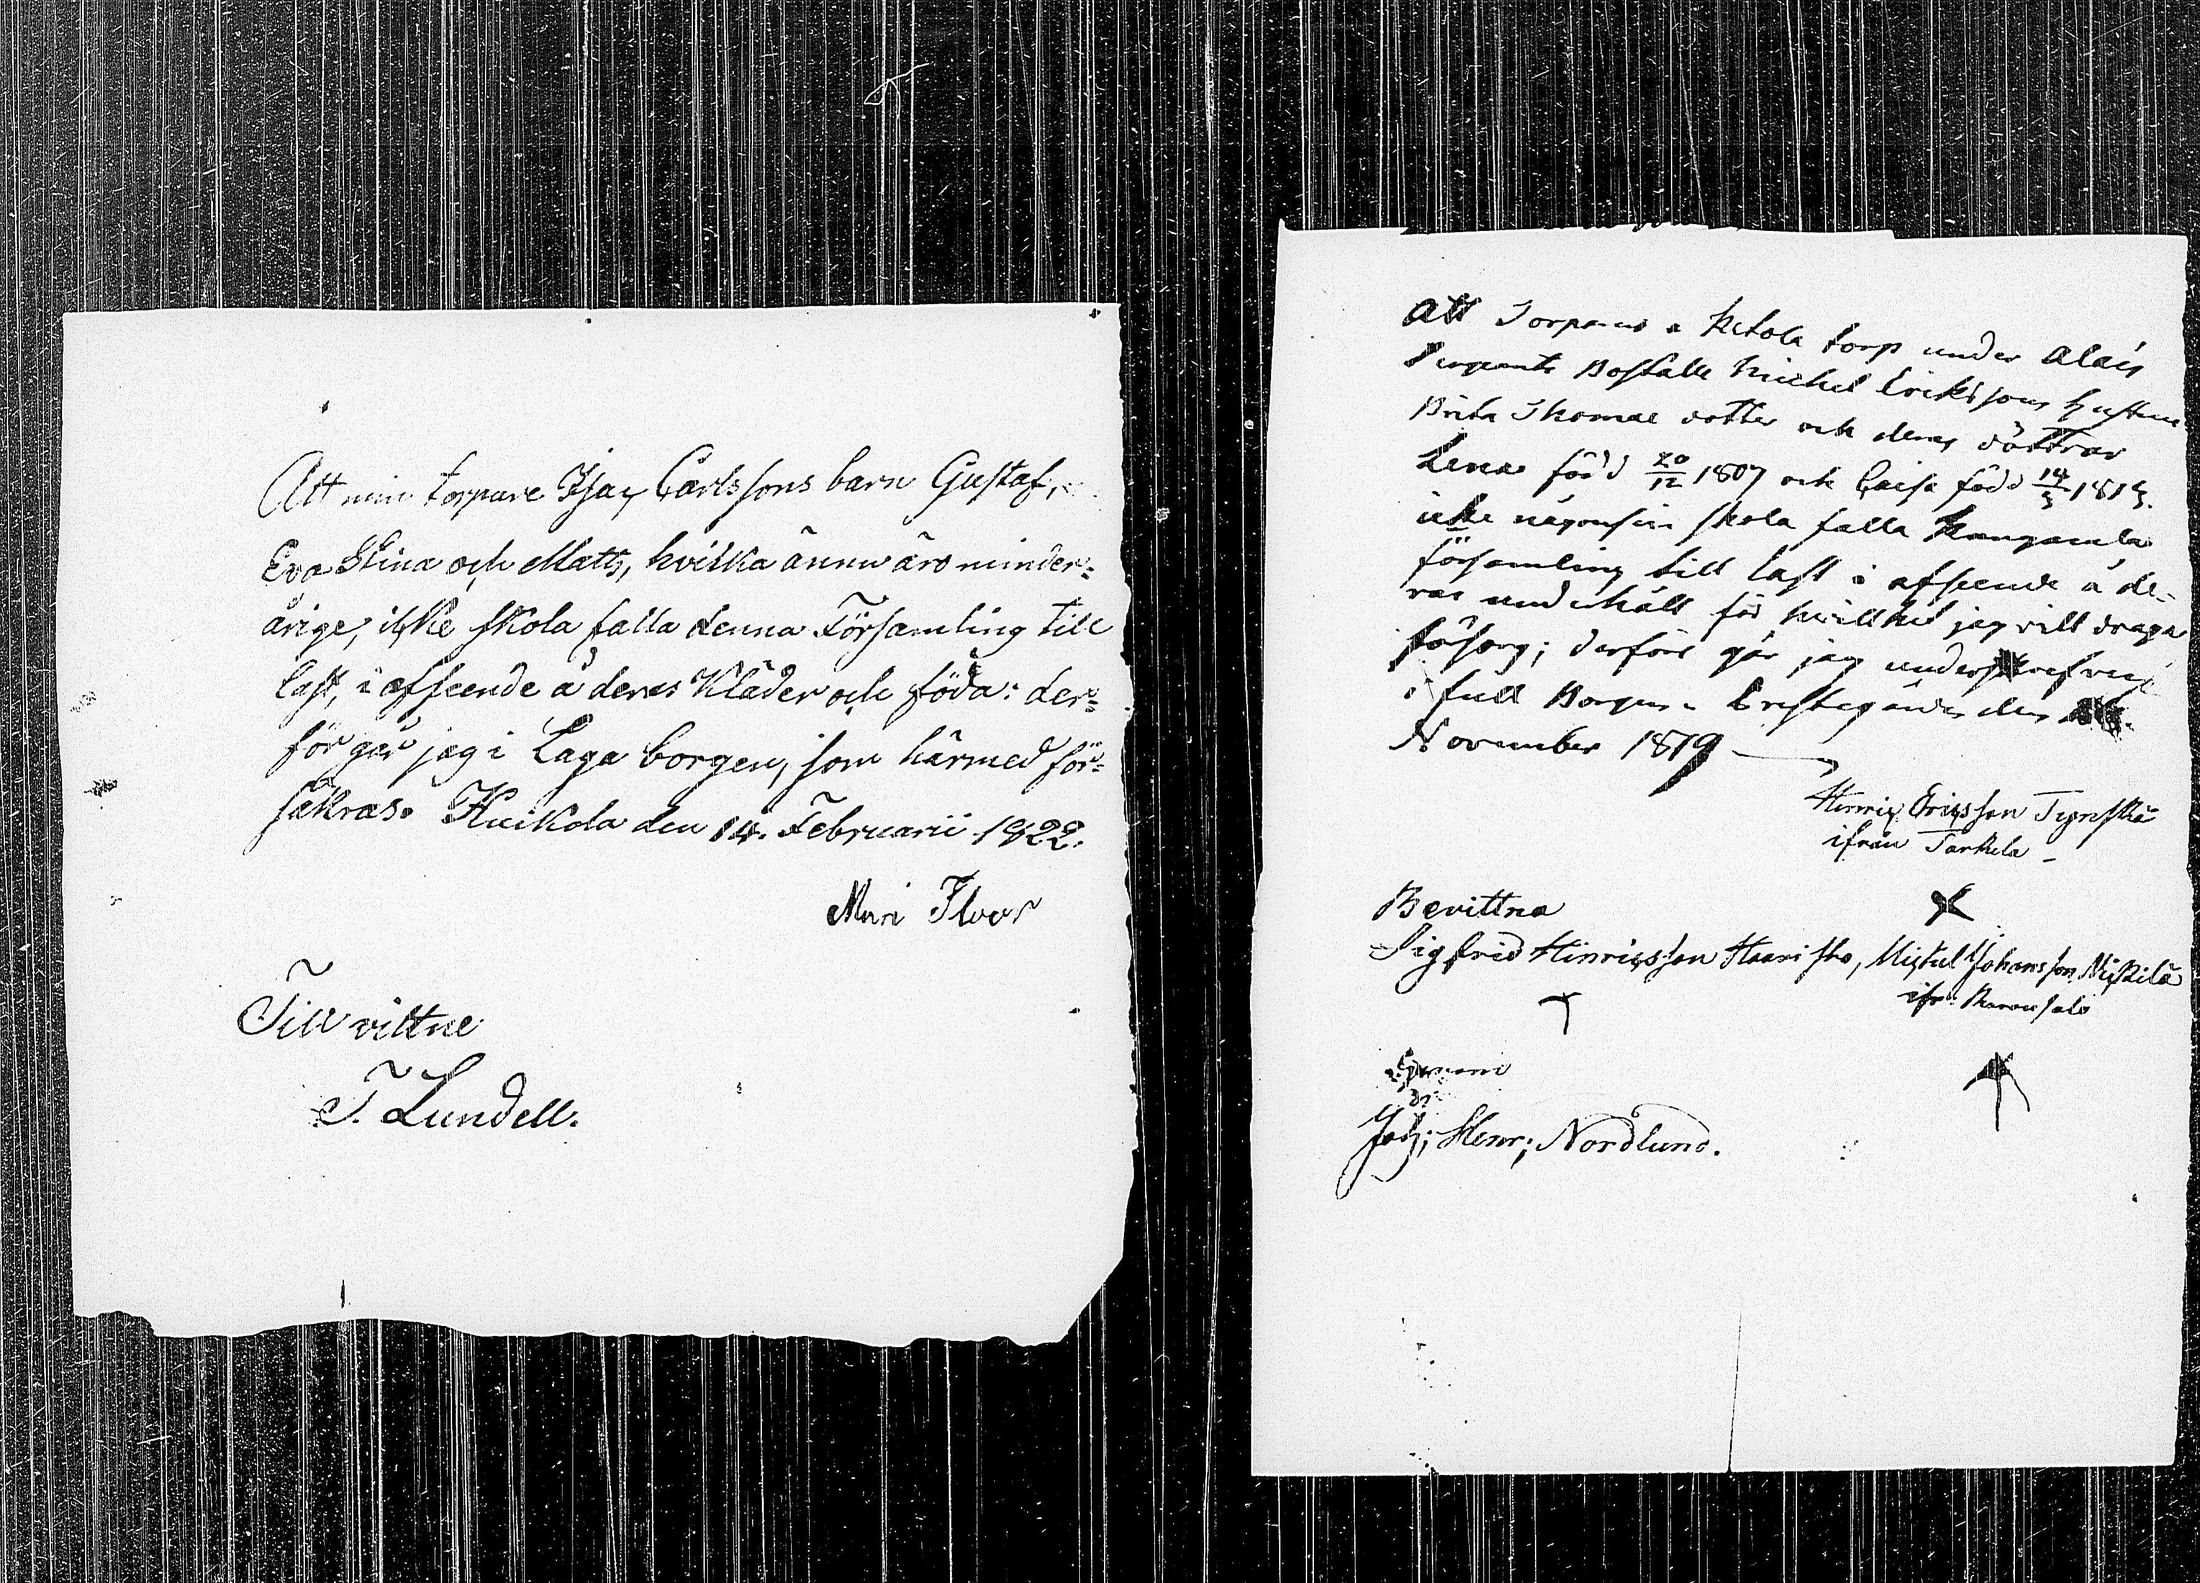 Att min torpare Isac Carlssons barn Gustaf,
Eva Stina och Matts, hvilka ännu äro minder=
årige, icke skola falla denna Församling till
last, i afseende å deras Kläder och föda: der=
för går jag i Laga borgen, som härmed för=
säkras. Huikola den 14. Februarii 1822.
Till vittne
T. Lundell.
Att Torparens a Ketola torp under Alais
Sergeants Boställe Michel Erickssons hustru
Brita Thomae dotter och deras döttrar
Lena född 20/12 1807 och Caisa född 14/3 181
icke någonsin skola falla Kangasala
församling till last i afseende å de-
ras underhåll för hvilket jag vill draga
försorg; derföre går jag underskrefven
i full Borgen. den
November 1819
Henric Ericsson
ifrån Tarkela -
Bevittna
Sigfrid Hinricsson Haavisko, Mickel Johansson Mickilä
ifr.
Joh; Henr; Nordlund.